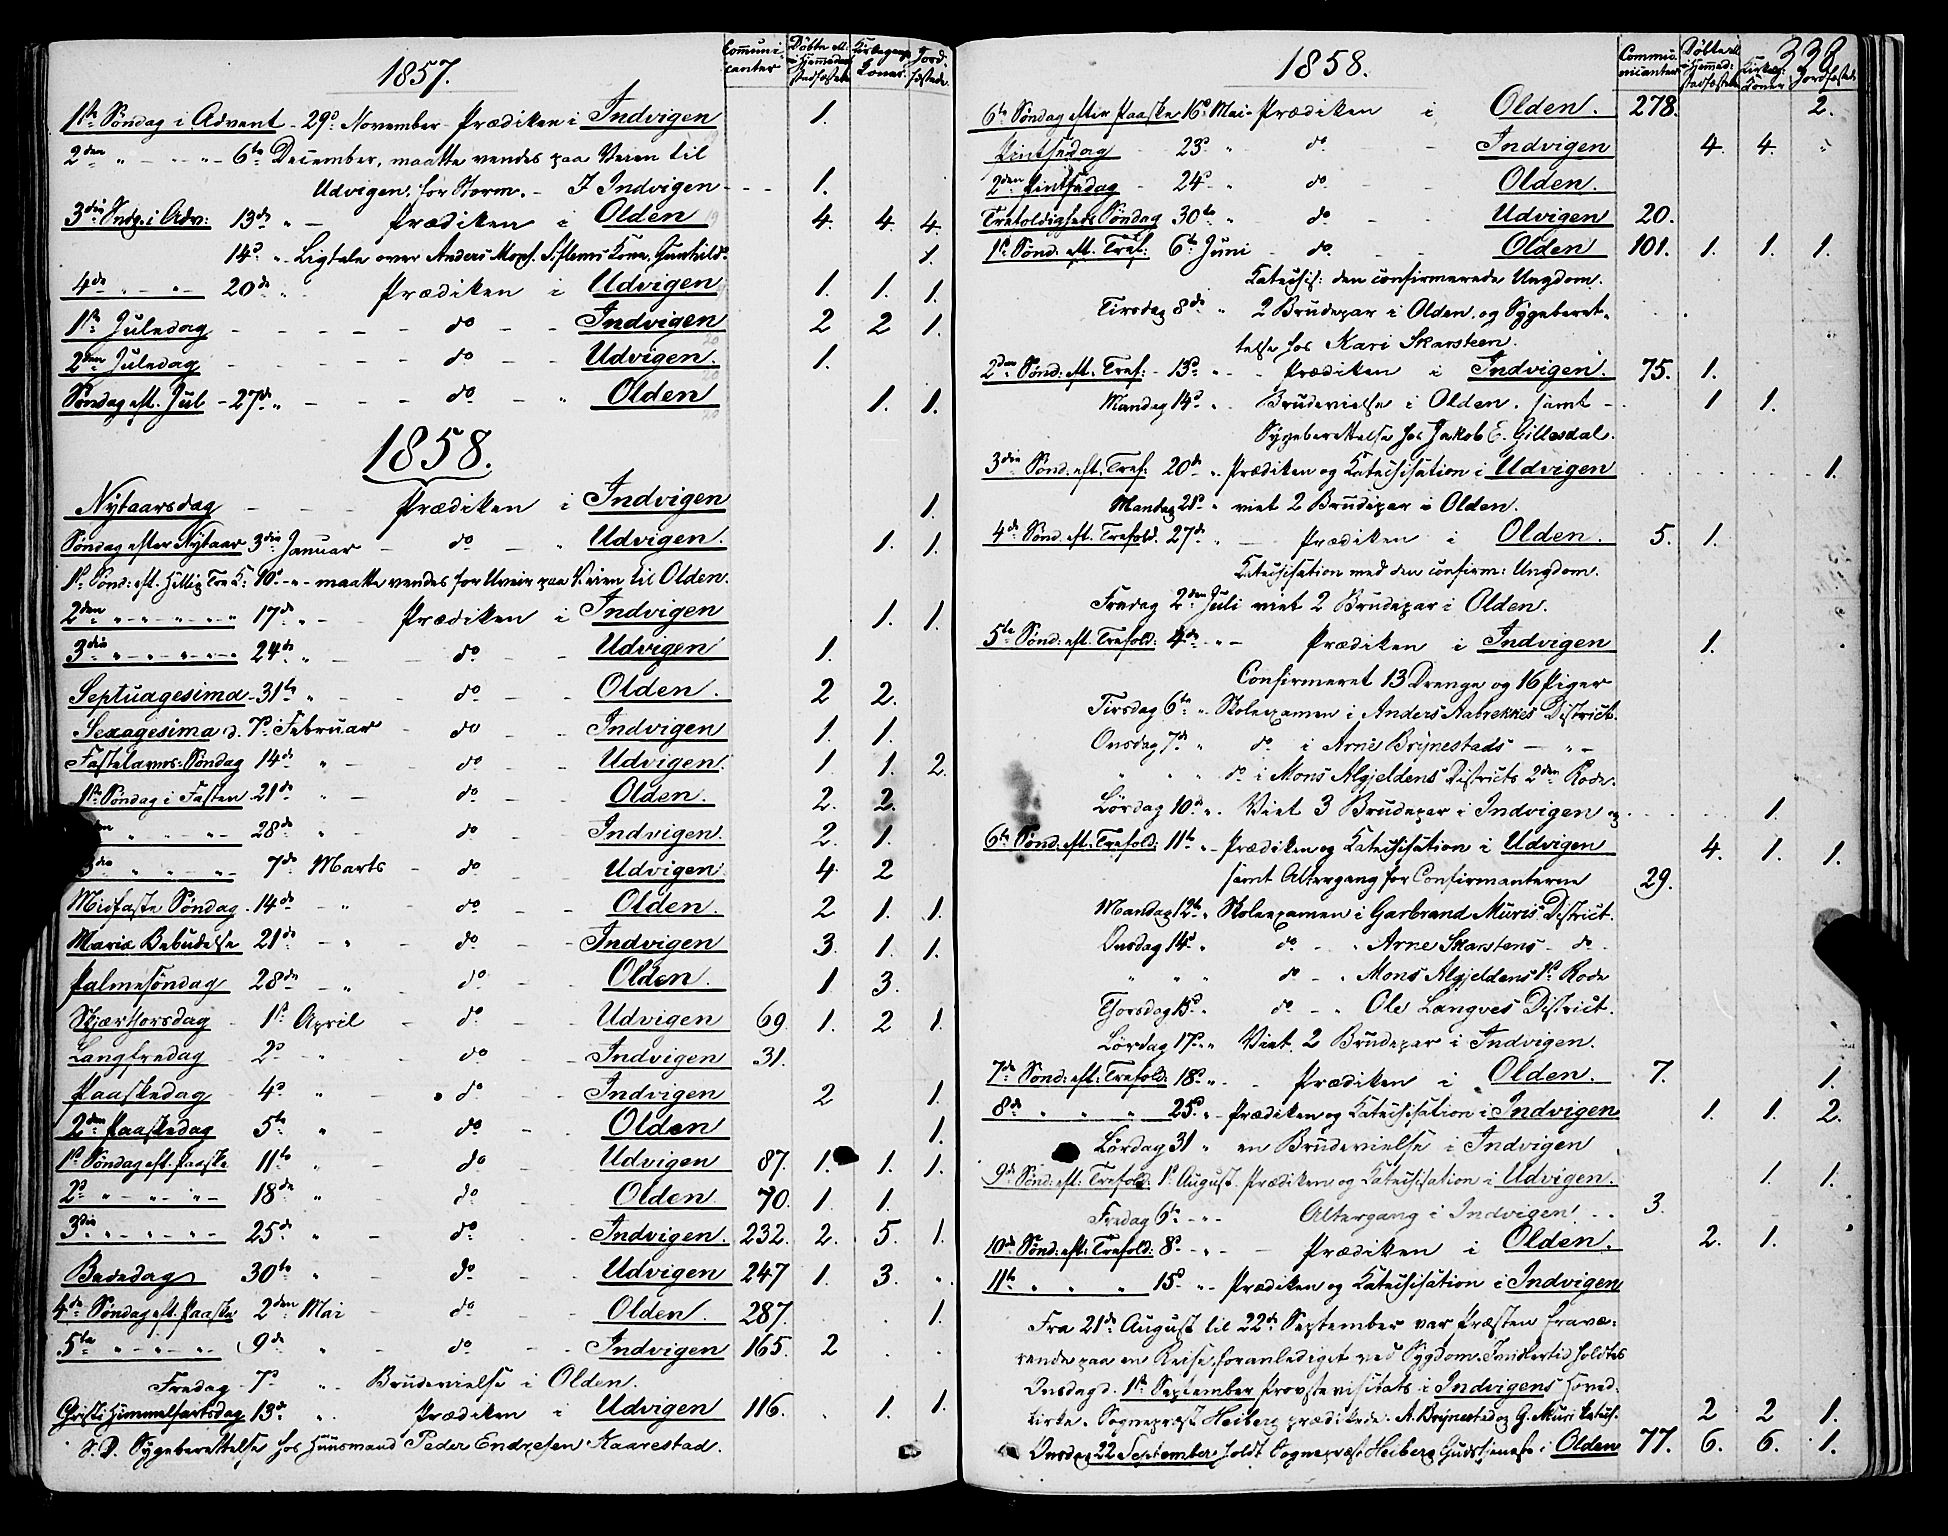 1857.
Communicanter
Döbte el: i Hjemmedaab stadfæstede
Kirkegangs Koner.
Jordfæstede.
1ste Söndag i Advent - 29de November - Prædiken i Indvigen 1.
2den " - " - " - 6te December, maatte vendes paa Veien til
Udvigen, for Storm. - I Indvigen - - - 1.
3die Søndg. i Adv: 13de " - Prædiken i Olden 4. 4. 4.
14de " - Ligtale over Anders Kone, Gunhild 1.
4de " - " - 20de " - Prædiken i Udvigen 1. 1. 1.
1ste Juledag - - - - do - - Indvigen 2 2 1.
2den Juledag - - - - do - - Udvigen. 1.
Söndag eft. Jul - 27de " - - - do - " Olden 1. 1.
1858.
Nytaarsdag - - - Prædiken i Indvigen 1.
Söndag efter Nytaar 3die Januar - do - " Udvigen. 1. 1.
1ste Sönd: eft. Hellig Tre K: 10de - " - maatte vendes for Uveir paa Veien til Olden.
2den " - " - " - " 17de " - - Prædiken i Indvigen 1. 1.
3die " - " - " - " 24de " - - do - - Udvigen 1.
Septuagesima - 31te " - do - - Olden. 2 2.
Sexagesima d. 7de Februar - do - Indvigen 1. 1.
Fastelavns-Söndag 14de " - do - - Udvigen. 1. 1. 2.
1ste Söndag i Fasten 21de " - do - Olden. 2. 2.
" - " - " 28de " - do - Indvigen. 2. 1.
3die " " " " - 7de Marts - do - Udvigen. 4. 2
Midfaste Söndag - 14de - " - do - - Olden. 2 1. 1.
Mariæ Bebudelse 21de - " - do - - Indvigen 3. 1. 1.
Palmesöndag 28de - " - do - - Olden. 1 3.
Skjærthorsdag - 1ste April - do - Udvigen 69. 1. 2 1.
Langfredag - 2de - " - do - - Indvigen 31.
Paaskedag - 4de " - do - - Indvigen 2 1.
2den Paaskedag 5te " - do - - Olden 1.
1ste Söndag eft. Paaske 11te " - do - - Udvigen 87. 1. 1. 1.
2den " - " - " - 18de " - do - - Olden. 70. 1. 1.
3die " - " - " - 25de " - do - - Indvigen. 232. 2. 5. 1.
Bededag 30te " - do - - Udvigen 247 1. 3. "
4de Söndag eft. Paaske 2den Mai - do - - Olden. 287. . . 1.
5te " - " - " - 9de " - do - - Indvigen 165. 2 . .
Fredag - 7de " . Brudevielse i Olden.
Christi Himmelfartsdag 13de " . Prædiken i Udvigen 116. . 1. 1.
S. D. Sygeberettelse hos Huusmand Peder Endresen Kaarestad.
1858.
Communicanter
Döbte el. i Hjemmed: stadfæstede
Kirkeg: Koner
Jordfæstede
6te Søndag efter Paaske 16de Mai - Prædiken i Olden. 278. 2.
Pintsedag - 23de " do - - Indvigen 4. 4. "
2den Pintsedag - 24de " do - - Olden.
Trefoldigheds Söndag 30te " do - - Udvigen 20.
1ste Sönd. eft. Tref: 6te Juni - do - - Olden 101. 1. 1. 1.
Katechis: den confirmerede Ungdom.
Tirsdag 8de " 2 Brudepar i Olden. og Sygeberet-
telse hos Kari Skarsteen.
2den Sönd: eft. Tref: - 13de " - - Prædiken i Indvigen. 75. 1.
Mandag 14de " . Brudevielse i Olden. samt - 1 1.
Sygeberettelse hos Jakob E. Gillesdal.
3die Sönd: eft. Tref: 20de " Prædiken og Katechisation i Udvigen 1.
Mandag 21de " viet 2 Brudepar i Olden.
4de Sönd. eft. Trefold. 27de " - Prædiken i Olden. 5. 1.
Katechisation med den confirm: Ungdom.
Fredag 2den Juli viet 2 Brudepar i Olden.
5te Sönd: eft. Trefold: 4de " - Prædiken i Indvigen 1.
Confirmeret 13 Drenge og 16 Piger
Tirsdag 6te " . Skoleexamen i Anders Aabrekkes District.
Onsdag 7de " do i Arne Brynestads - " -
" " " do i Mons Algjeldens Districts 2den Rode.
Lördag 10de " . Viet 3 Brudepar i Indvigen og 1.
6te Sönd. eft. Trefold: 11te " - Prædiken og Katechisation i Udvigen 4. 1. 1.
samt Altergang for Confirmanterne 29.
Mandag 12te " Skoleexamen i Garbrand Muris District.
Onsdag 14de " do - - " Arne Skarstens - do -
" " " do - " Mons Algjeldens 1ste Rode
Thorsdag 15de " do - - " Ole Langves District.
Lördag 17de " . Viet 2 Brudepar i Indvigen.
7de Sönd: eft: Trefold: 18de " . - Prædiken i Olden. 7. 1.
8de " " " 25de " - Prædiken og Katechisation i Indvigen 1. 1. 2.
Lördag 31 " en Brudevielse i Indvigen
9de Sönd: eft: Trefold: 1ste August. Prædiken og Katechisation i Udvigen. 1. 1.
Fredag 6te - " - Altergang i Indvigen. . . 3.
10de Sönd: eft: Trefold: 8de - " - - Prædiken i Olden. 2. 1.
11te " " " 15de " - Prædiken og Katechisation i Indvigen
Fra 21de August til 22de September var Præsten fravæ-
rende paa en Reise, foranlediget ved Sygdom. Imidlertid holdtes
Onsdag d. 1ste September Provstevisitats i Indvigens Hoved-
kirke. Sognepræst Heiberg prædikede. A. Brynestad og G. Muri katech. 2 2 1.
Onsdag 22 September holdt Sognepræst Heiberg Gudstjeneste i Olden 77. 6. 6. 1.